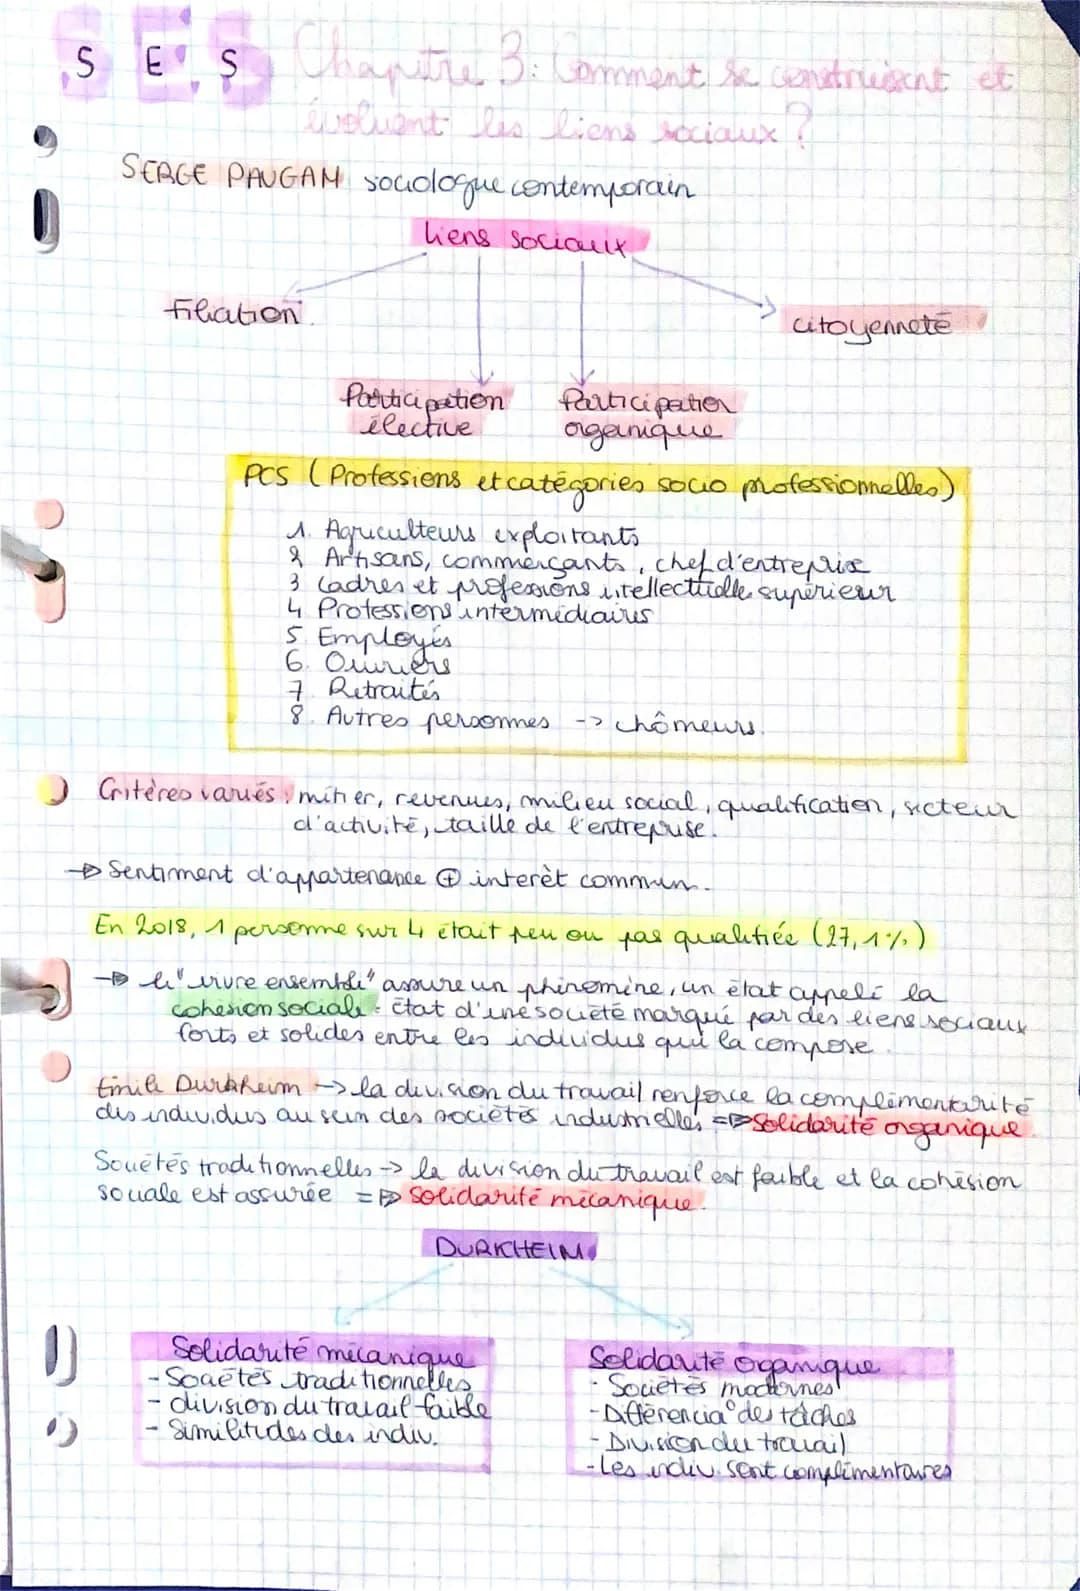 S E S Chapitre 3: Comment se construisent et
évoluent les liens sociaux ?
SERGE PAUGAM sociologue contemporain
Liens sociaux
Filiation
citoyenneté
Participation
élective
Participation
organique
PCS (Professions et catégories socio professionnelles)
1. Agriculteurs exploitants
2 Artisans, commerçants, chef d'entreprise
3 Cadres et professions intellectuelle supérieur
4 Professions intermédiaires
5 Employés
6. Ouvriers
7. Retraités
8. Autres personnes -> chômeurs.
Critères variés : métier, revenues, milieu social, qualification, secteur
d'activité, taille de l'entreprise.
-> Sentiment d'appartenance ⊕ interêt commun.
En 2018, 1 personne sur 4 était peu ou pas qualifiée (27,1%)
-> le "vivre ensemble" assure un phénomène, un état appelé la
cohésion sociale : état d'une société marqué par des liens sociaux
forts et solides entre les individus qui la compose.
Emile Durkheim -> la division du travail renforce la complémentarité
des individus au sein des sociétés industrielles => Solidarité organique.
Sociétés traditionnelles -> la division du travail est faible et la cohésion
sociale est assurée => Solidarité mécanique.
DURKHEIM
Solidarité mécanique
- Sociétés traditionnelles
- division du travail faible
- Similitudes des indiv.
Solidarité oganique
- Sociétés modernes
- Différencia° des tâches
- Division du travail
- Les indiv. sont complémentaires